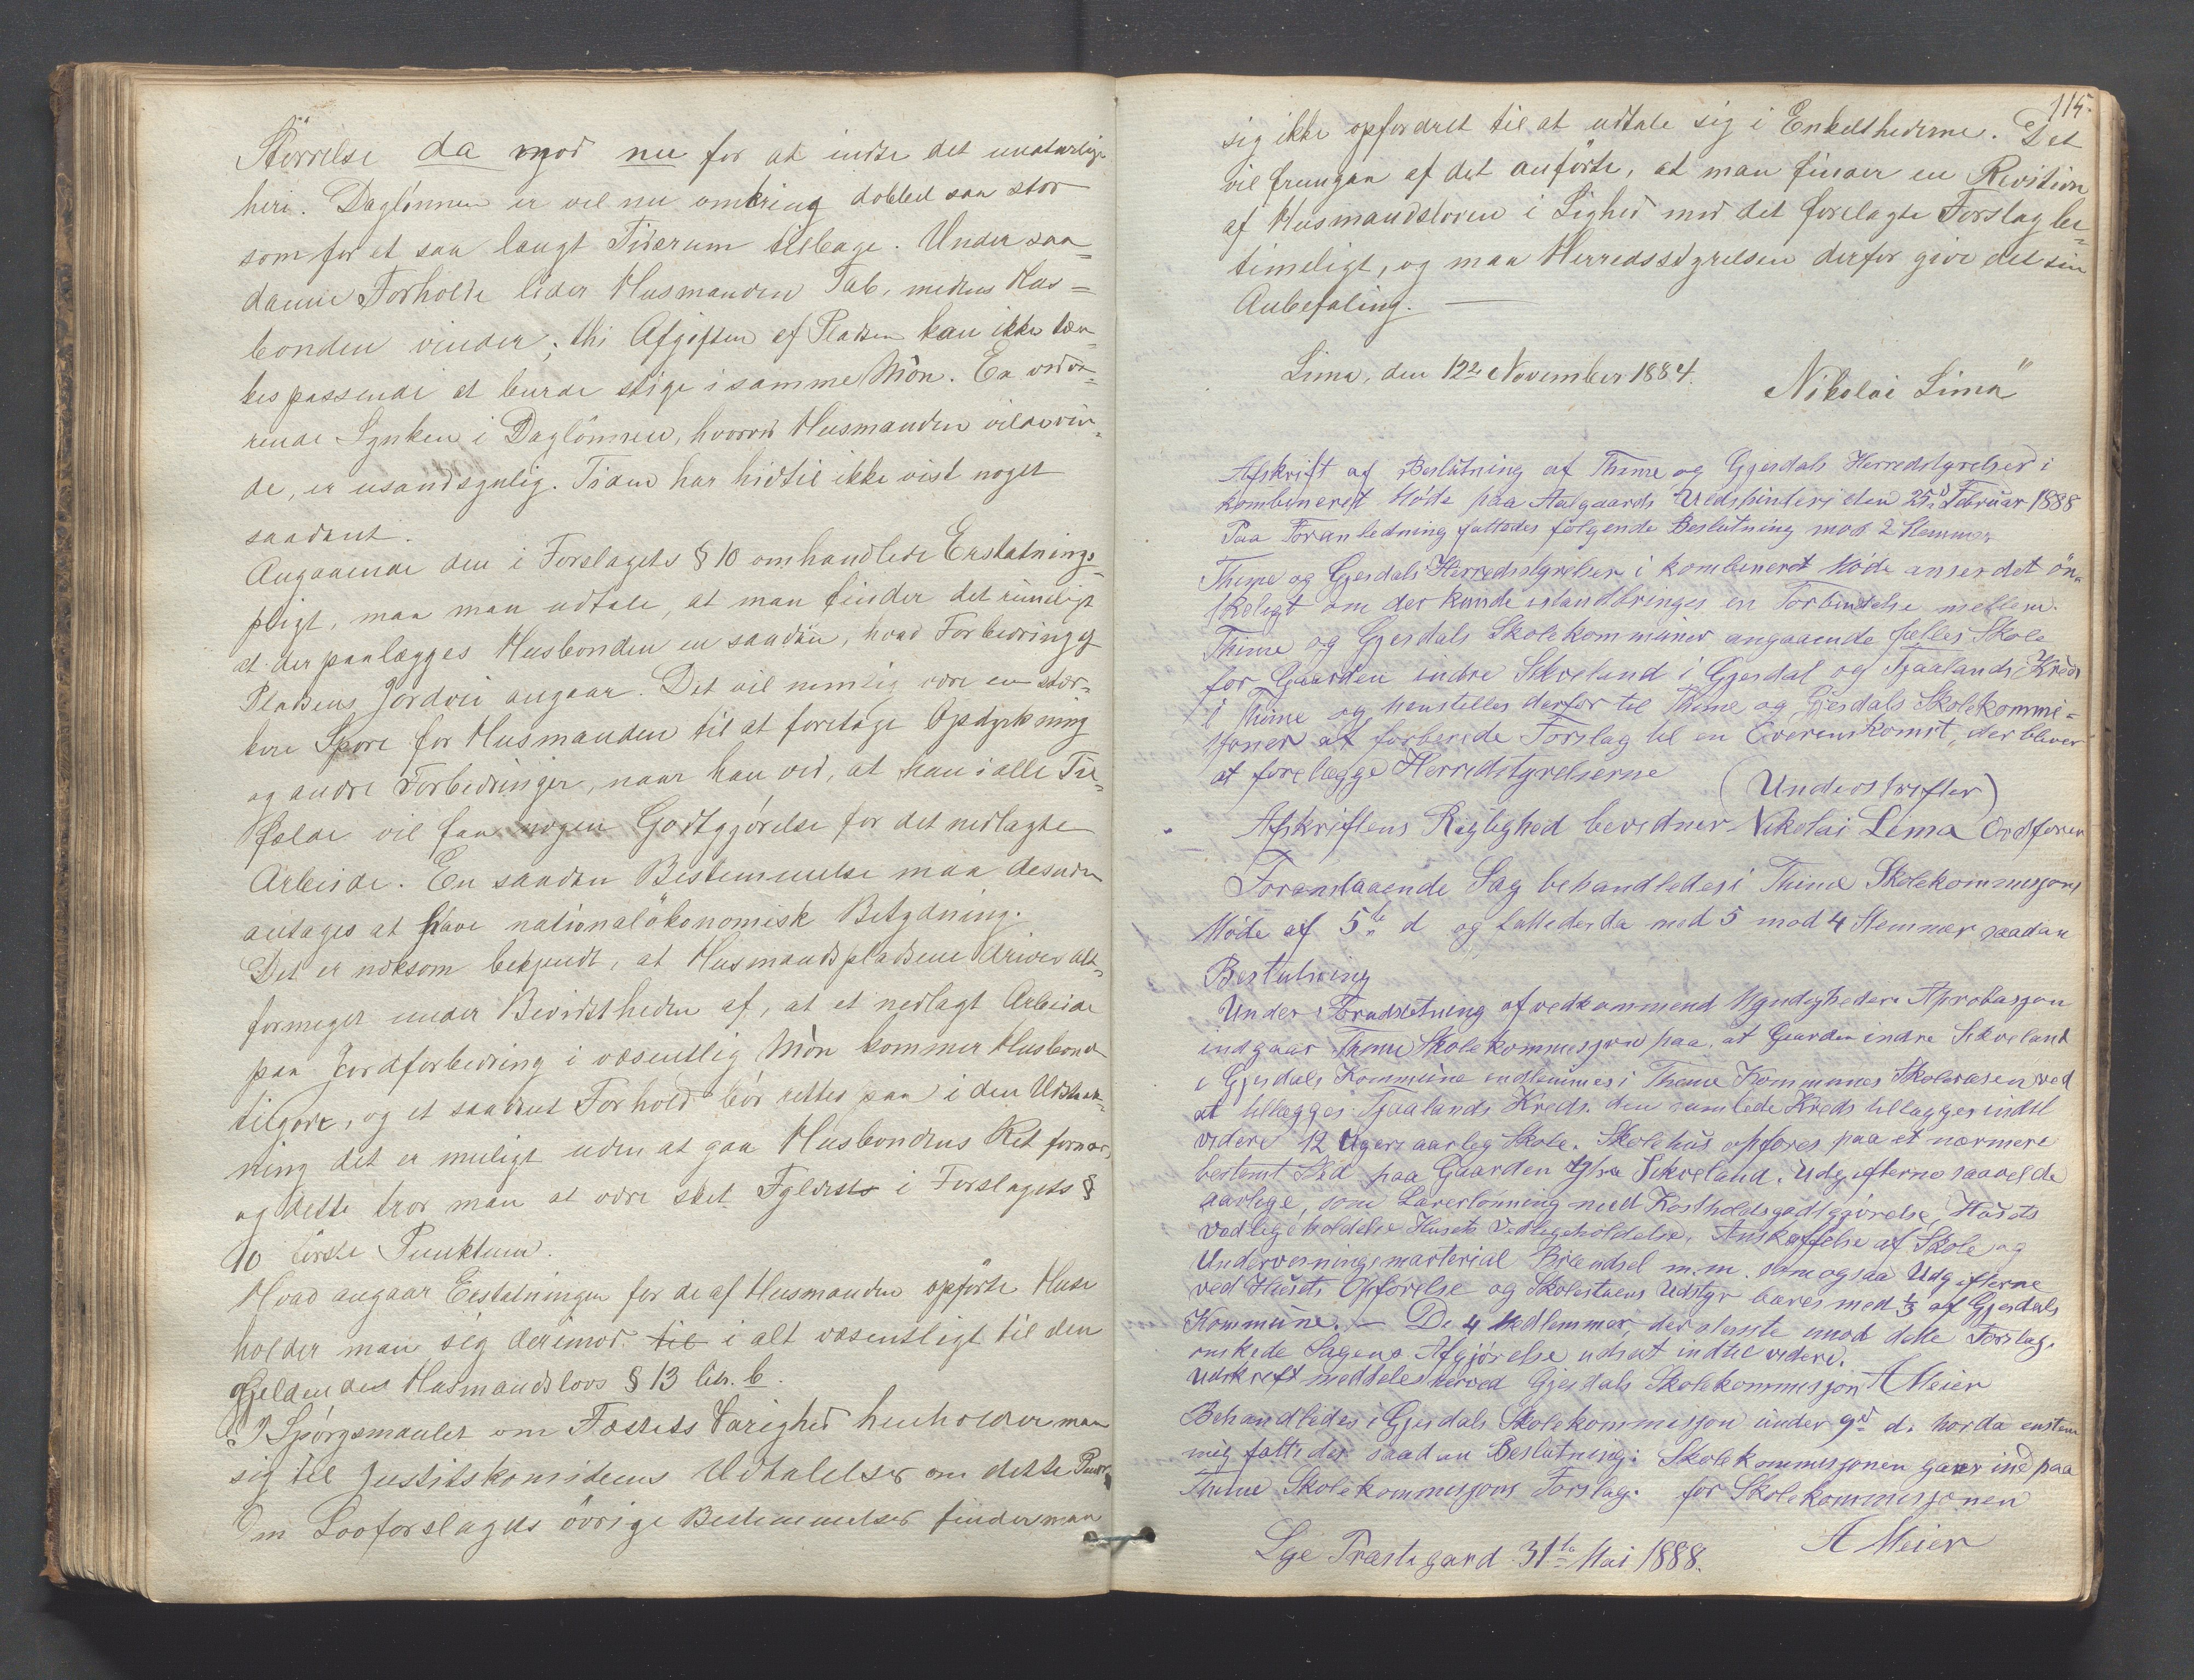 Störrelse da mod nu for at indse det unaturlige
heri. Daglönnen er vel nu omkring dobbelt saa stor
som for et saa langt Tiderum tilbage. Under saa=
danne Forholde lider Husmanden Tab, medens Hus=
bonden vinder; thi Afgiften af Pladsen kan ikke tæn=
kes passende at burde stige i samme Mòn. En vedva=
rende Synken i Daglönnen, hvorved Husmanden vilde vin=
de, er usandsynlig. Tiden har hidtil ikke vist noget
saadant.
Angaaende den i Forslagets § 10 omhandlede Erstatnings=
pligt, maa man udtale, at man finder det rimeligt
at der paalægges Husbonden en saadan, hvad Forbedring af
Pladsens Jordvei angaar. Det vil nemlig være en stær=
kere Spore for Husmanden til at foretage Opdyrkning
og andre Forbedringer, naar han ved, at han i alle Til=
fælde vil faa nogen Godtgjörelse for det nedlagte
Arbeide. En saadan Bestemmelse maa desuden
antages at have nationalökonomisk Betydning.
Det er noksom bekjendt, at Husmandspladsene drives alt=
formeget under Bevidstheden af, at et nedlagt Arbeide
paa Jordforbedring i væsentlig Mòn kommer Husbond
tilgode, og et saadant Forhold bör rettes paa i den Udstræk=
ning det er muligt uden at gaa Husbondens Ret fornær,
og dette tror man at være sket Fyldest i Forslagets §
10 förste Punktum.
Hvad angaar Erstatningen for de af Husmanden opförte Huse
holder man sig derimod til i alt væsentligt til den
Gjeldende Husmandslovs § 13 litr. b.
I Spörgsmaalet om Fæstets Varighed henholder man
sig til Justitskomiteens Udtalelser om dette Punkt
Om Lovforslagets övrige Bestemmelser finder man
115.
sig ikke opfordret til at udtale sig i Enkelthederne. Det
vil fremgaa af det anförte, at man finder en Revision
af Husmandsloven i Lighed med det forelagte Forslag be=
timeligt, og maa Herredsstyrelsen derfor give det sin
Anbefaling.
Lima, den 12te November 1884.
Nikolai Lima"
Afskrift af Beslutning af Thime og Gjesdals Herredstyrelser i
kombineret Möde paa Aalgaards Uldspinderi den 25de Februar 1888
Paa Foranledning fattedes fölgende Beslutning mod 2 Stemmer
Thime og Gjesdals Herredsstyrelser i kombineret Möde anser det ön=
skeligt om der kunde istandbringes en Forbindelse mellem
Thime og Gjesdals Skolekommuner angaaende fælles Skole
for Gaarden indre Sikveland i Gjesdal og Tjaalands Kreds
i Thime og henstilles derfor til Thime og Gjesdals Skolekommi=
sjoner at forberede Forslag til en Overenskomst, der bliver
at forelægge Herredstyrelserne
(Underskrifter)
Afskriftens Rigtighed bevidner Nikolai Lima Ordförer
Foranstaaende Sag behandledes i Thime Skolekommisjons
Möde af 5te d og fattedes da med 5 mod 4 Stemmer saadan
Beslutning
Under Forudsetning af vedkommend Myndigheders Aprobasjon
indgaar Thime Skolekommisjon paa, at Gaarden indre Sikveland
i Gjesdals Kommune indlemmes i Thime Kommunes Skolevæsen ved
at tillægges Tjaalands Kreds. den samlede Kreds tillægges indtil
videre 12 Ugers aarlig Skole. Skolehus opföres paa et nærmere
bestemt Sted paa Gaarden Ytre Sikveland. Udgifterne saavel de
aarlige, som Lærerlönning med Kostholdsgodtgjörelse, Husets
Vedligeholdelse Husets Vedligeholdelse, Anskaffelse af Skole og
Undervisningsmaterial Brændsel m.m. som ogsaa Udgifterne
ved Husets Opförelse og Skolestuens Udstyr bæres med 1/3 af Gjesdals
Kommune. – De 4 Medlemmer, der stemte imod dette Forslag,
önskede Sagens Afgjörelse udsat indtil videre.
Udskrift meddeles herved Gjesdals Skolekommisjon A Meier
Behandledes i Gjesdals Skolekommisjon under 9de d. hvor da enstem
mig fattedes saadan Beslutning: Skolekommisjonen gaar ind paa
Thime Skolekommisjons Forslag. for Skolekommisjonen
Lye Præstegaard 31te Mai 1888.
A Meier